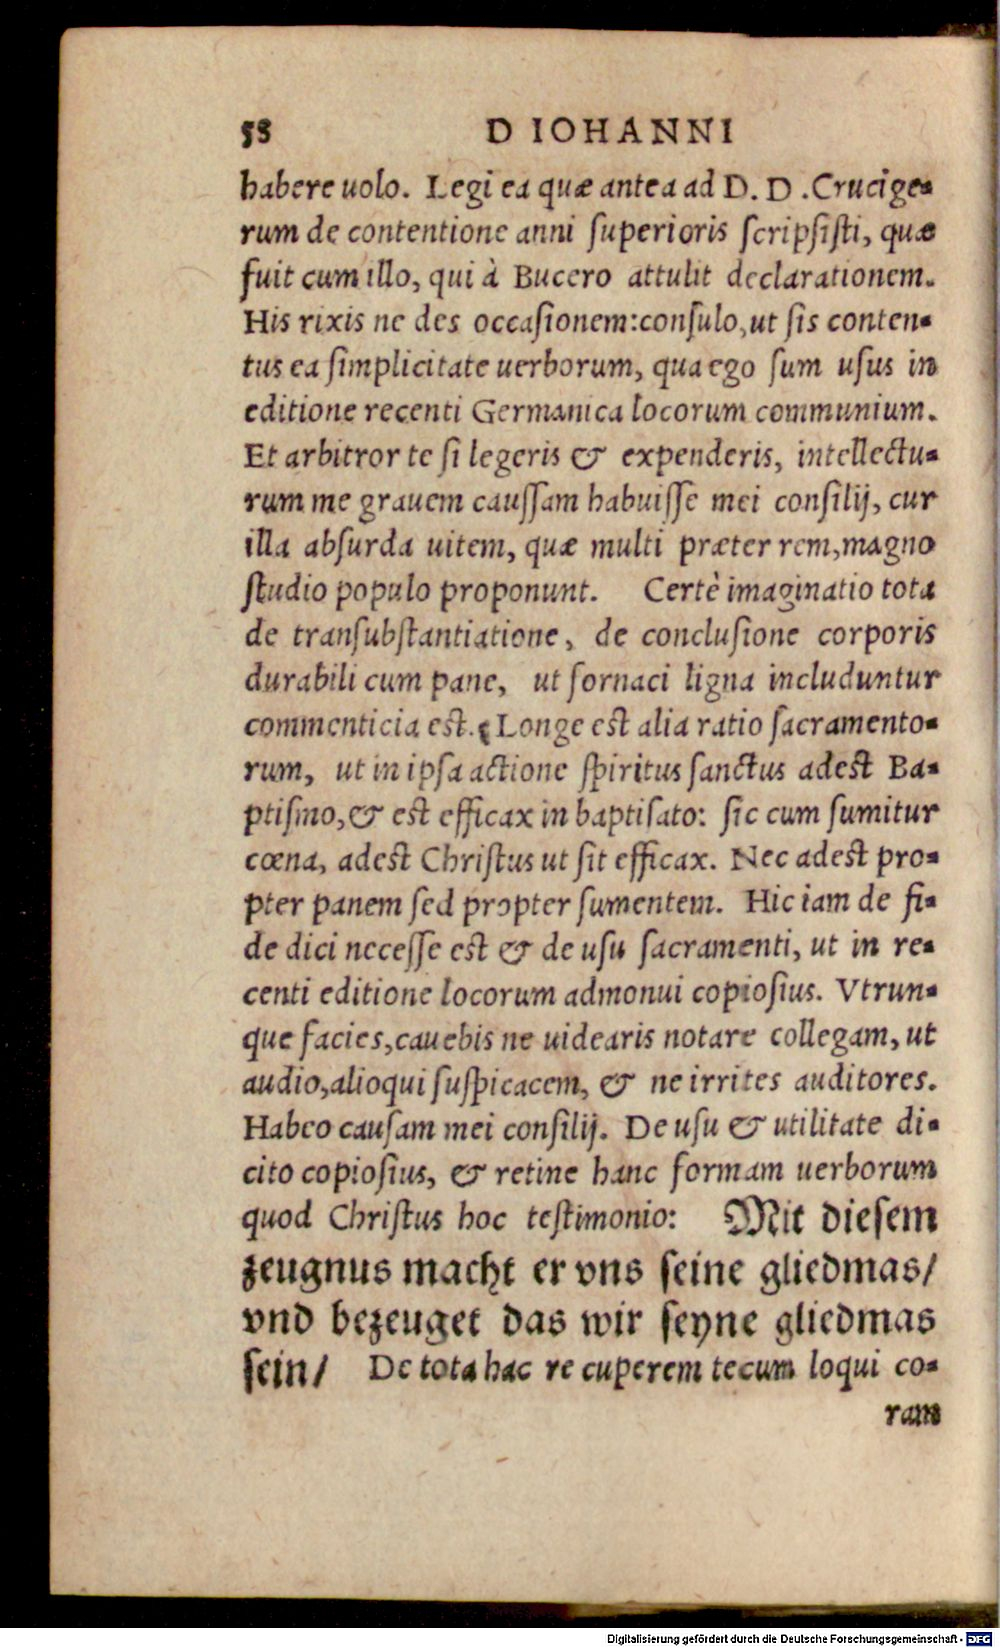 58 D IOHANNI
habere uolo. Legi ea quæ antea ad D. D. Crucige-
rum de contentione anni superioris scripsisti, quæ
fuit cum illo, qui à Bucero attulit declarationem.
His rixis ne des occasionem: consulo, ut sis conten-
tus ea simplicitate uerborum, qua ego sum usus in
editione recenti Germanica locorum communium.
Et arbitror te si legeris & expenderis, intellectu-
rum me grauem caussam habuisse mei consilij, cur
illa absurda uitem, quæ multi præter rem, magno
studio populo proponunt. Certè imaginatio tota
de transubstantiatione, de conclusione corporis
durabili cum pane, ut fornaci ligna includuntur
commenticia est. Longe est alia ratio sacramento-
rum, ut in ipsa actione spiritus sanctus adest Ba-
ptismo, & est efficax in baptisato: sic cum sumitur
cœna, adest Christus ut sit efficax. Nec adest pro-
pter panem sed propter sumentem. Hic iam de fi-
de dici necesse est & de usu sacramenti, ut in re-
centi editione locorum admonui copiosius. Vtrun-
que facies, cauebis ne uidearis notare collegam, ut
audio, alioqui suspicacem, & ne irrites auditores.
Habeo causam mei consilij. De usu & utilitate di-
cito copiosius, & retine hanc formam uerborum
quod Christus hoc testimonio: Mit diesem
zeugnus macht er vns seine gliedmas/
vnd bezeuget das wir seyne gliedmas
sein/ De tota hac re cuperem tecum loqui co-
ram
Digitalisierung gefördert durch die Deutsche Forschungsgemeinschaft - DFG